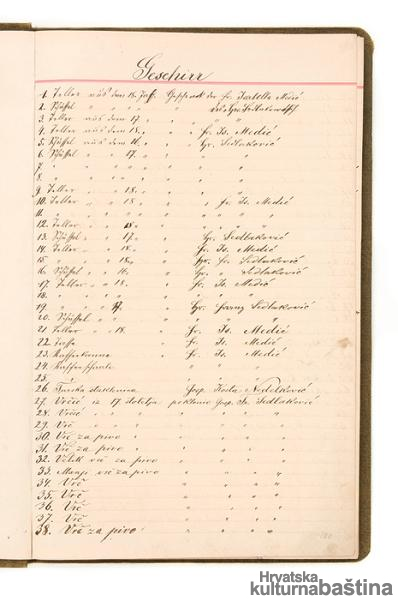 Geschirr
1. Teller aus dem 18. Jah. Geschenk der Fr. Isabella Medić
2. Schüssel " " " "
3. Teller aus dem 17. " " "
4. Teller aus dem 18. " " Fr. Is. Medić
5. Schüssel aus dem 16. " " Hr. Sedlaković
6. Schüssel " " 17. " " "
7. " " " " " "
8. " " " " " "
9. Teller " " 18. " " "
10. Teller " " 18 " " Fr. Is. Medić
11. " " " " " " "
12. Teller " " 18. " "
13. Schüssel " " 17. " Hr. Sedlaković
14. Teller " " 18. " Fr. Is. Medić
15. " " " 18. " Hr. Fr. Sedlaković
16. Schüssel " " 16. " Hr. " Sedlaković
17. Teller " " 18 " Fr. Is. Medić
18. " " " " " "
19. " " " 17. " Hr. Sedlaković
20. Schüssel " " " " "
21. Teller " " 18. " Fr. Is. Medić
22. " Fr. Is. Medić
23. Kaffeekanne " Fr. Is. Medić
24.
25.
26. Turska Gosp. Kosta Nedeljković
27. Vrčić iz 17. stoletja poklonio Gosp. Fr. Sedlaković
28. Vrčić " " " "
29. Vrč " " " "
30. Vrč za pivo " " " "
31. Vrč za pivo " " " "
32. Velik vrč za pivo " " " "
33. Manji vrč za pivo " " " "
34. Vrč " " " "
35. Vrč " " " "
36. Vrč " " " "
37. Vrč " " " "
38. Vrč za pivo " " " "
Hrvatska
kulturnabaština